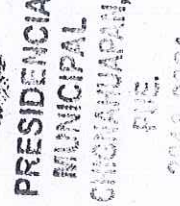 PRESIDENCIA
MUNICIPAL
CHIGNAHUAPAN,
PUE.